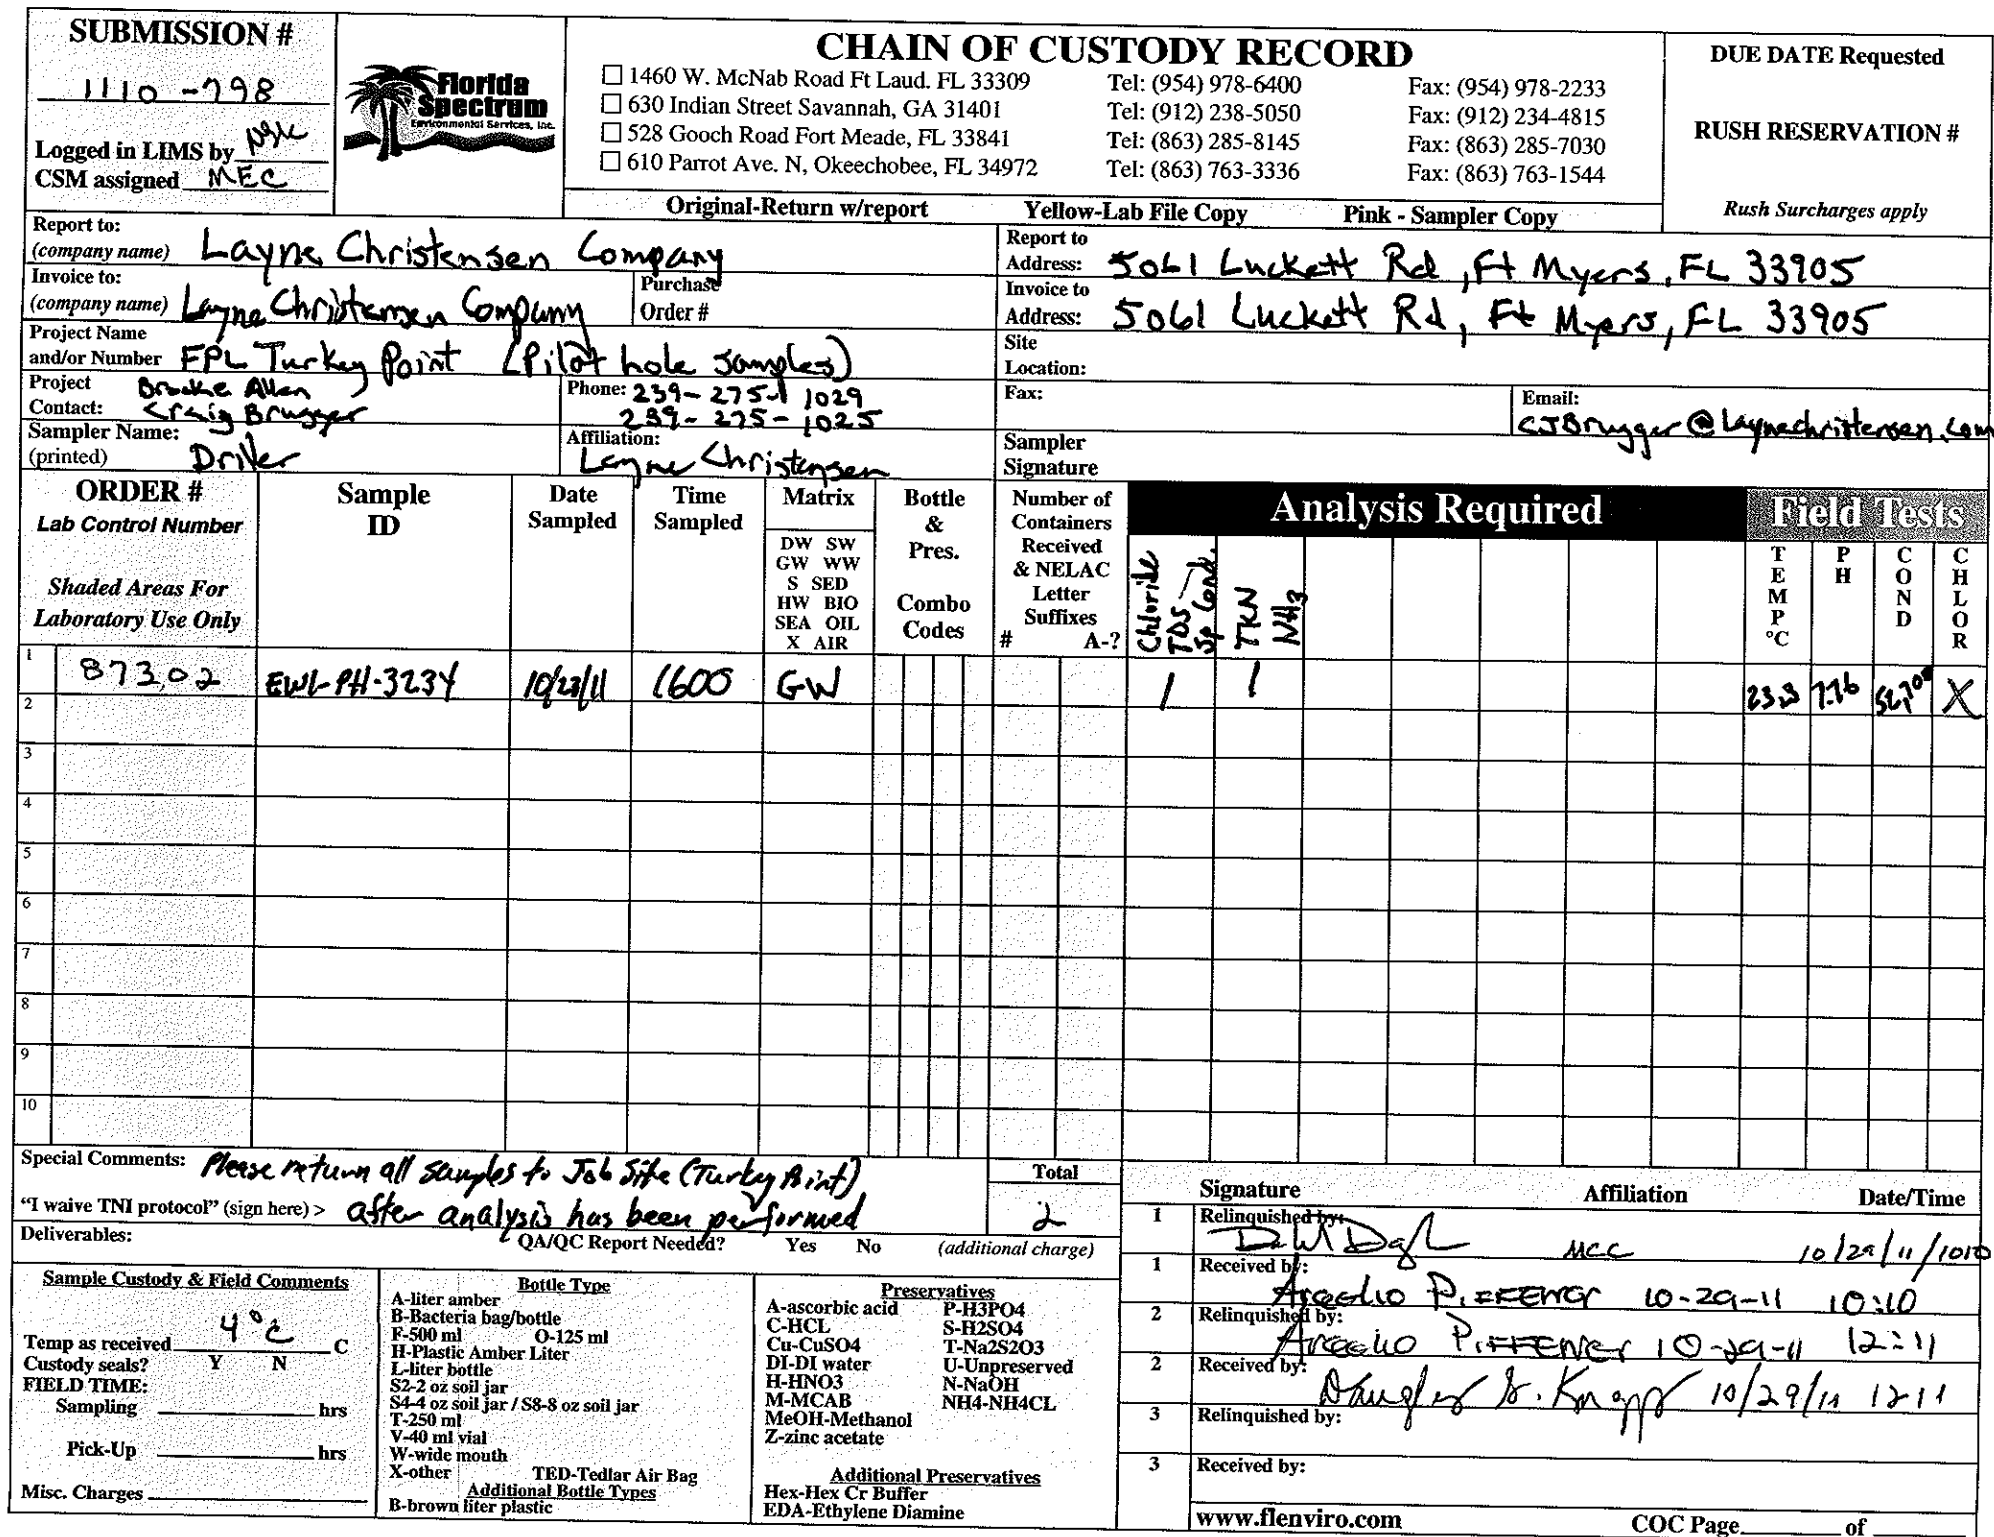 SUBMISSION #
1110-798
Logged in LIMS by
CSM assigned MEC
Florida
Spectrum
Environmental Services, Inc.
CHAIN OF CUSTODY RECORD
☐ 1460 W. McNab Road Ft Laud. FL 33309 Tel: (954) 978-6400 Fax: (954) 978-2233
☐ 630 Indian Street Savannah, GA 31401 Tel: (912) 238-5050 Fax: (912) 234-4815
☐ 528 Gooch Road Fort Meade, FL 33841 Tel: (863) 285-8145 Fax: (863) 285-7030
☐ 610 Parrot Ave. N, Okeechobee, FL 34972 Tel: (863) 763-3336 Fax: (863) 763-1544
Original-Return w/report Yellow-Lab File Copy Pink - Sampler Copy
DUE DATE Requested
RUSH RESERVATION #
Rush Surcharges apply
Report to:
(company name) Layne Christensen Company
Report to
Address: 5061 Luckett Rd, Ft Myers, FL 33905
Invoice to:
(company name) Layne Christensen Company
Purchase
Order #
Invoice to
Address: 5061 Luckett Rd, Ft Myers, FL 33905
Project Name
and/or Number FPL Turkey Point (Pilot hole samples)
Site
Location:
Project
Contact:
Brooke Allen
Craig Brugger
Phone: 239-275-1029
239-275-1025
Fax:
Email:
CJBrugger@laynechristensen.com
Sampler Name:
(printed) Driller
Affiliation:
Layne Christensen
Sampler
Signature
ORDER #
Lab Control Number
Shaded Areas For
Laboratory Use Only
Sample
ID
Date
Sampled
Time
Sampled
Matrix
DW SW
GW WW
S SED
HW BIO
SEA OIL
X AIR
Bottle
&
Pres.
Combo
Codes
Number of
Containers
Received
& NELAC
Letter
Suffixes
# A-?
Analysis Required
Chloride
TDS
Sp Cond.
TKN
NH3
Field Tests
TEMP °C
PH
COND
CHLOR
1 87302 1600 GW 1 1 23.3 7.76 X
2
3
4
5
6
7
8
9
10
Special Comments: Please return all samples to Job Site (Turkey Point)
"I waive TNI protocol" (sign here) > after analysis has been performed
Total
2
Deliverables: QA/QC Report Needed? Yes No (additional charge)
Sample Custody & Field Comments
Temp as received 4°C C
Custody seals? Y N
FIELD TIME:
Sampling hrs
Pick-Up hrs
Misc. Charges
Bottle Type
A-liter amber
B-Bacteria bag/bottle
F-500 ml O-125 ml
H-Plastic Amber Liter
L-liter bottle
S2-2 oz soil jar
S4-4 oz soil jar / S8-8 oz soil jar
T-250 ml
V-40 ml vial
W-wide mouth
X-other TED-Tedlar Air Bag
Additional Bottle Types
B-brown liter plastic
Preservatives
A-ascorbic acid P-H3PO4
C-HCL S-H2SO4
Cu-CuSO4 T-Na2S2O3
DI-DI water U-Unpreserved
H-HNO3 N-NaOH
M-MCAB NH4-NH4CL
MeOH-Methanol
Z-zinc acetate
Additional Preservatives
Hex-Hex Cr Buffer
EDA-Ethylene Diamine
Signature Affiliation Date/Time
1 Relinquished by: 10/29/11/1010
1 Received by: 10-29-11 10:10
2 Relinquished by: 10-29-11 12:11
2 Received by: Douglas G. Knapp 10/29/11 1211
3 Relinquished by:
3 Received by:
www.flenviro.com COC Page of